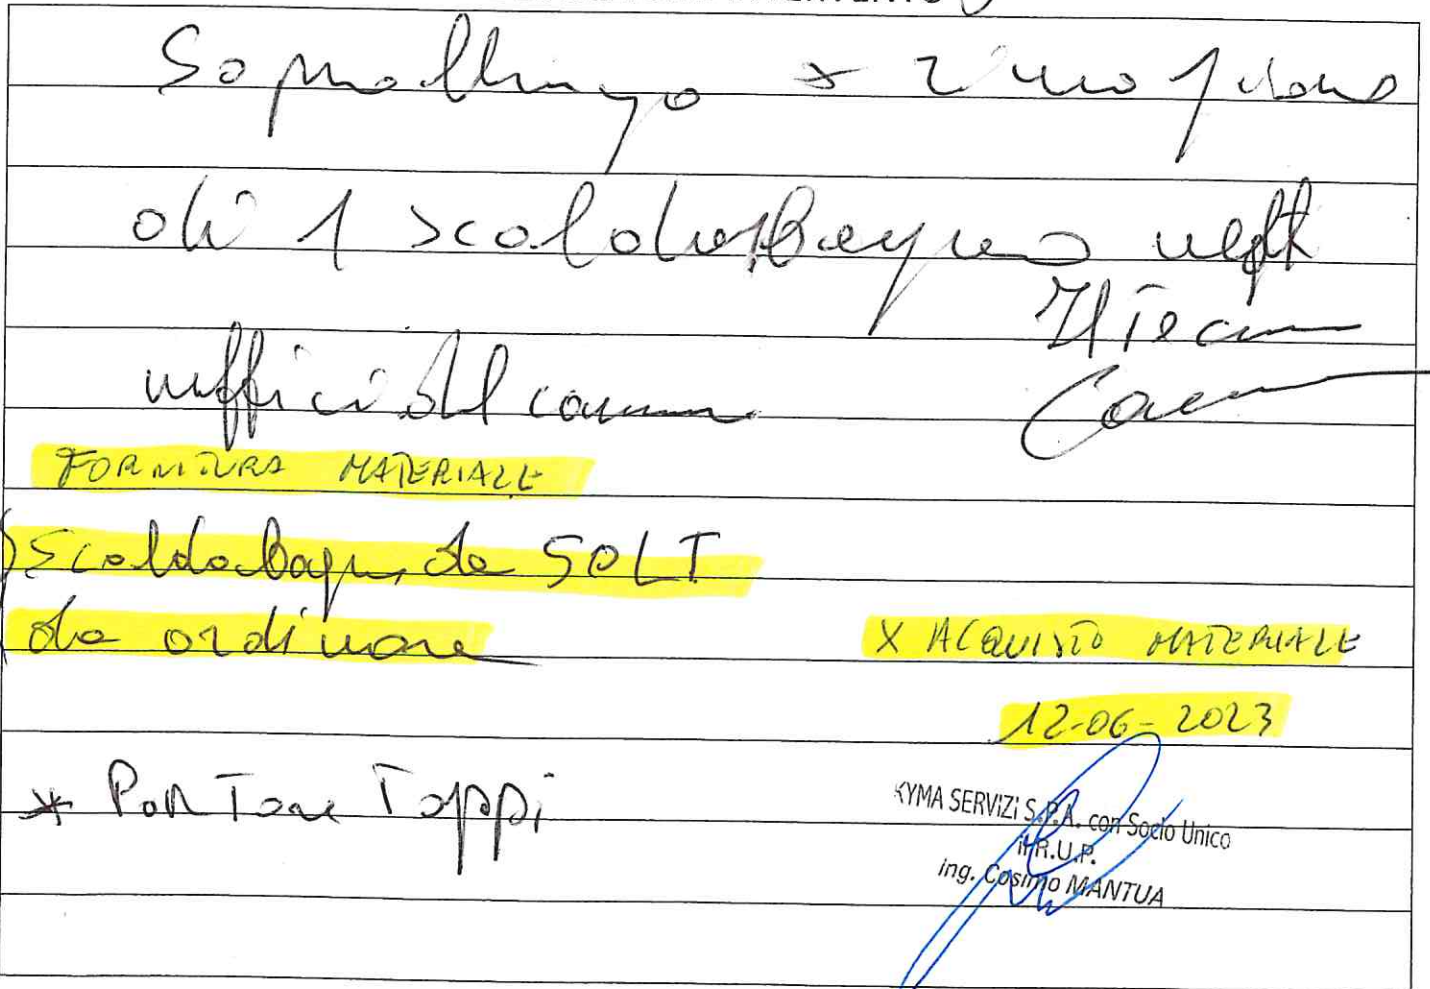 Sopralluogo x rimozione
di 1 scaldabagno negli
Il Tecn
uffici del comune
FORNITURA MATERIALE
scaldabagno da 50 LT
da ordinare
X ACQUISTO MATERIALE
12-06-2023
* Portare Tappi
KYMA SERVIZI S.P.A. con Socio Unico
il R.U.P.
ing. Cosimo MANTUA